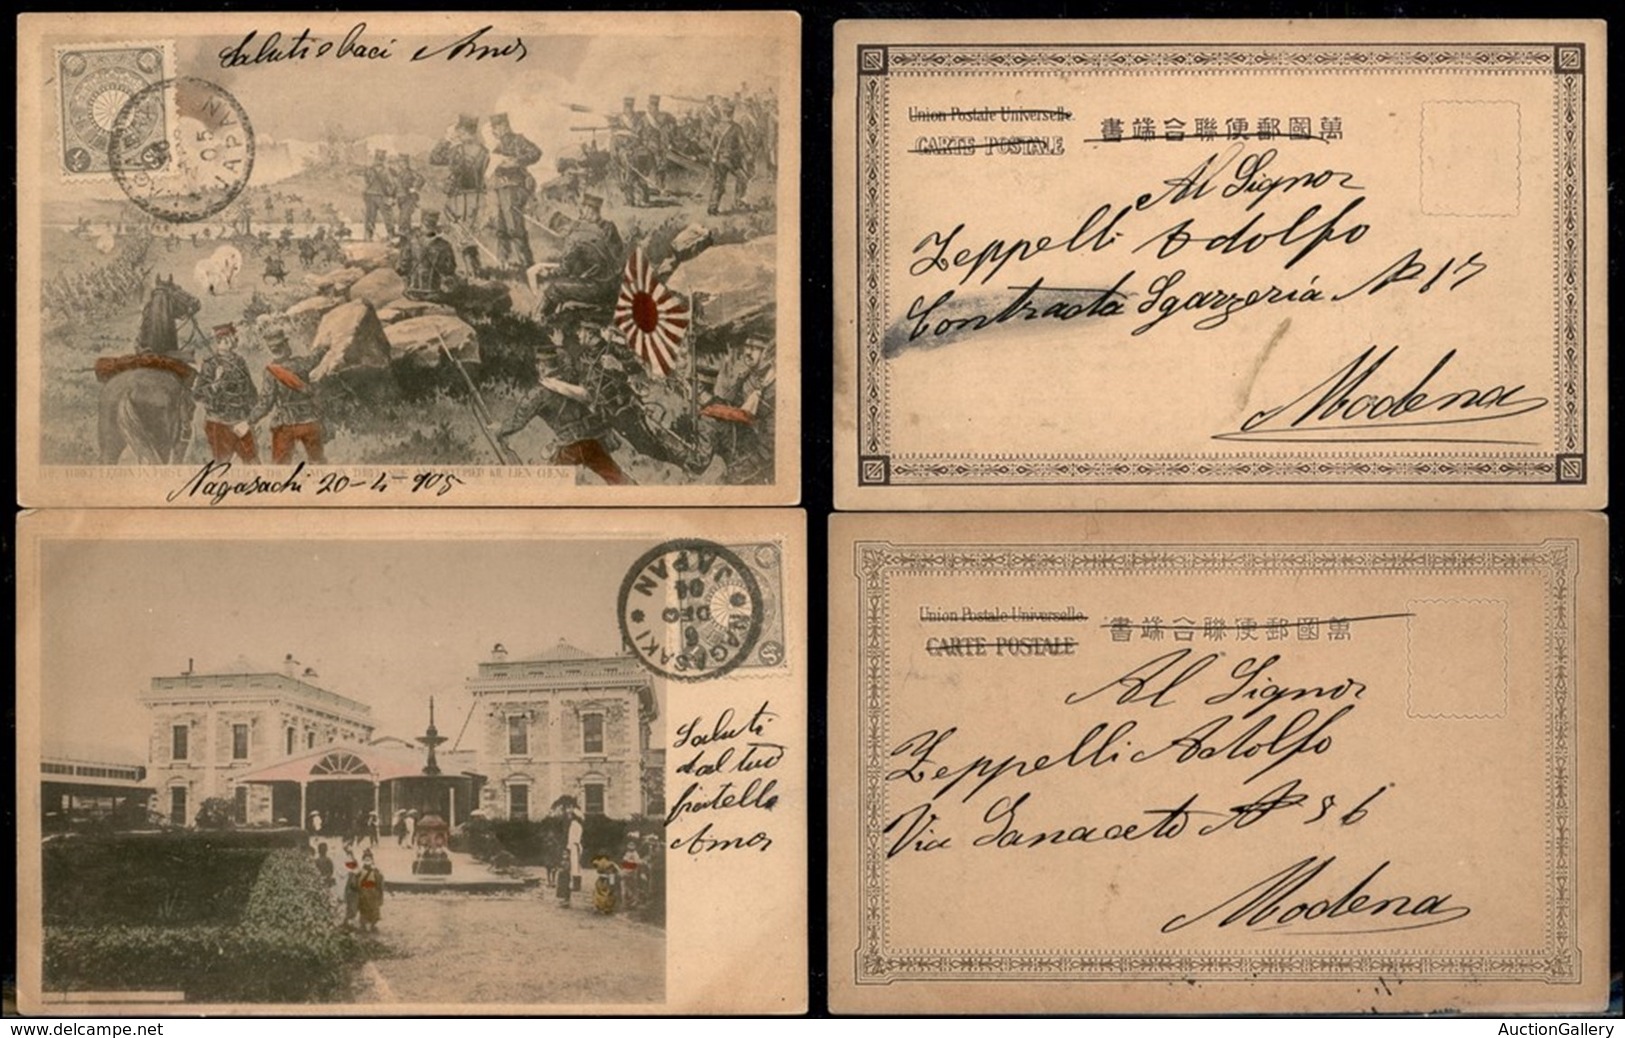 Saluti e baci Amos
JAPAN
05
Nagasachi 20-4-905
Union Postale Universelle.
CARTE POSTALE
書端合聯便郵國萬
Al Signor
Zeppelli Adolfo
Contrada Sgarzeria N 17
Modena
NAGASAKI
6
DEC
04
JAPAN
Saluti
dal tuo
fratello
Amos
Union Postale Universelle.
CARTE POSTALE
書端合聯便郵國萬
Al Signor
Zeppelli Adolfo
Via Ganaceto N 36
Modena
www.delcampe.net
AuctionGallery